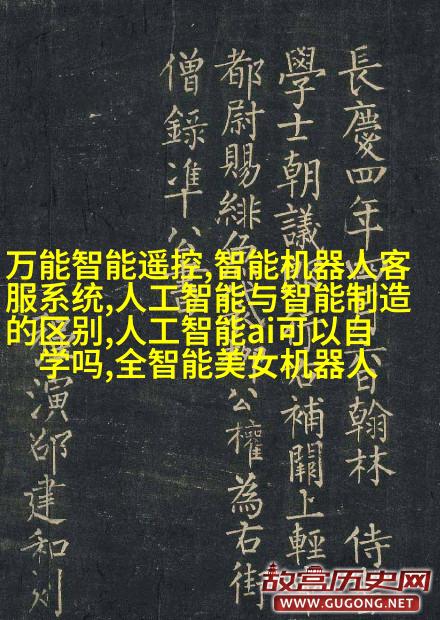 長慶四年 翰林 侍
學士朝議 右補闕上輕
都尉賜緋 公權為右街
僧錄準公
演邵建和刻
万能智能遥控,智能机器人客
服系统,人工智能与智能制造
的区别,人工智能ai可以自
学吗,全智能美女机器人
故宫历史网
WWW.GUGONG.NET